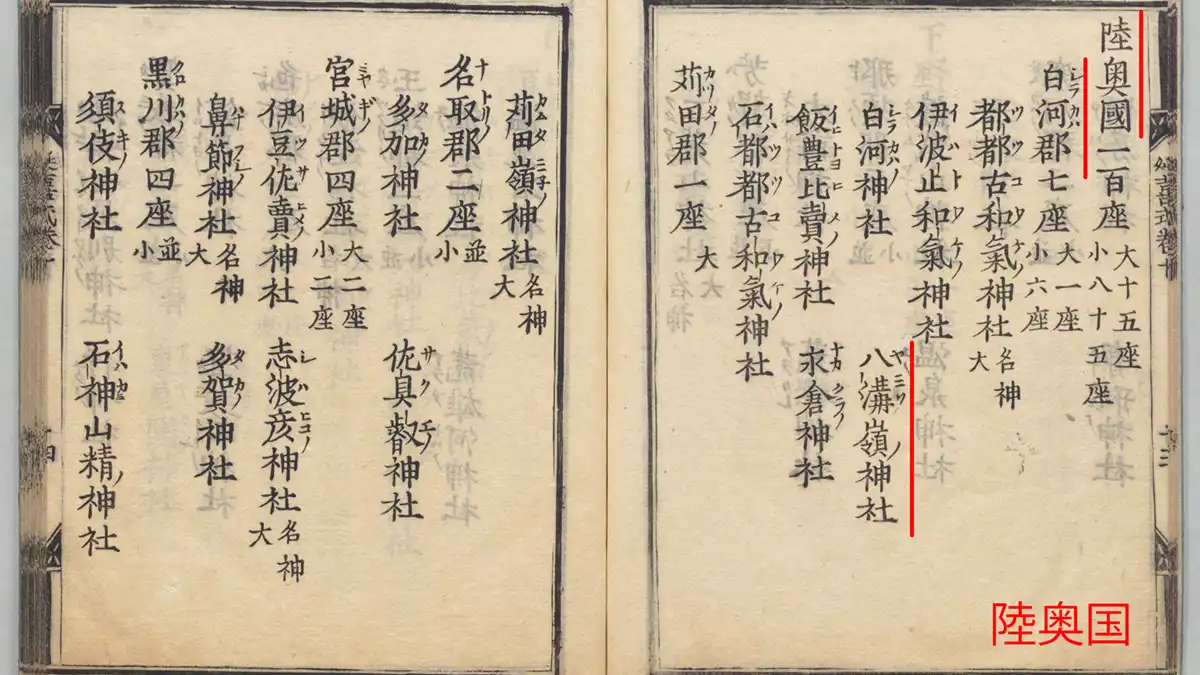 陸奥國一百座 大十五座 小八十五座
白河郡七座 大一座 小六座
都都古和氣神社 名神大
伊波止和氣神社
白河神社 八溝嶺神社
飯豊比賣神社 永倉神社
石都都古和氣神社
苅田郡一座 大
苅田嶺神社 名神大
名取郡二座 並小
多加神社 佐具叡神社
宮城郡四座 大二座 小二座
伊豆佐賣神社 志波彦神社 名神大
鼻節神社 名神大 多賀神社
黒川郡四座 並小
須伎神社 石神山精神社
陸奥国